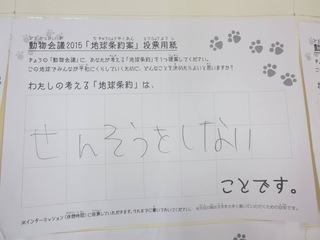 動物会議2015「地球条約案」投票用紙
きょうの「動物会議」に、あなたが考える「地球条約」を1つ提案してください。
この地球でみんなが平和にくらしていくために、どんなことを決めたらよいと思いますか?
わたしの考える「地球条約」は、
せんそうをしない
ことです。
※インターミッション(休憩時間)に投票していただきます。